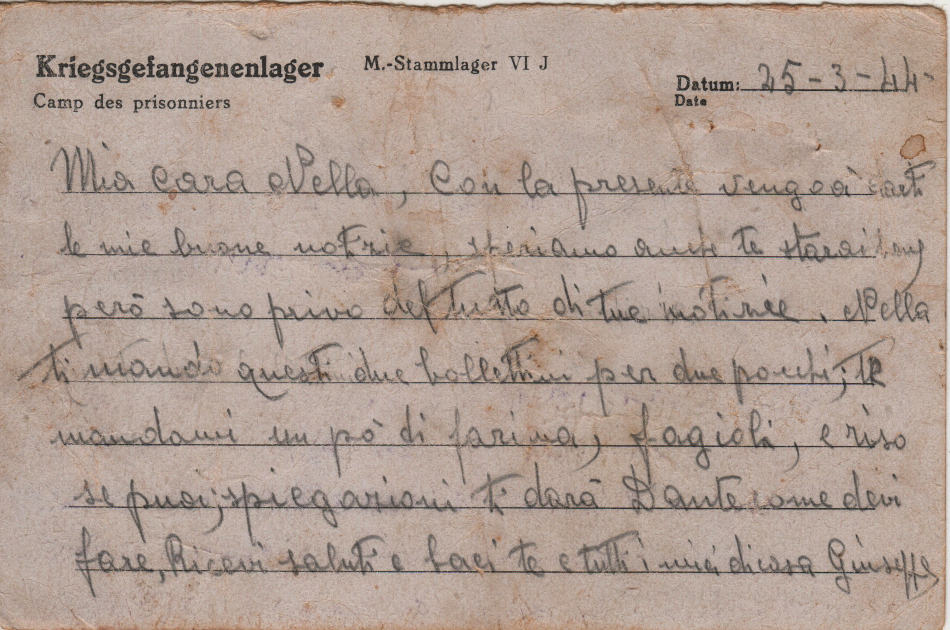 Kriegsgefangenenlager
M.-Stammlager VI J
Camp des prisonniers
Datum: 25-3-44
Date
Mia cara Nella, Con la presente vengo à
le mie buone notizie, speriamo anche te starai bene
però sono privo del tutto di tue notizie. Nella
ti mando questi due bollettini per due pacchi; te
mandami un pò di farina, fagioli, e riso
se puoi; spiegazioni ti darà Dante come devi
fare, Ricevi saluti e baci te e tutti i miei di casa Giuseppe